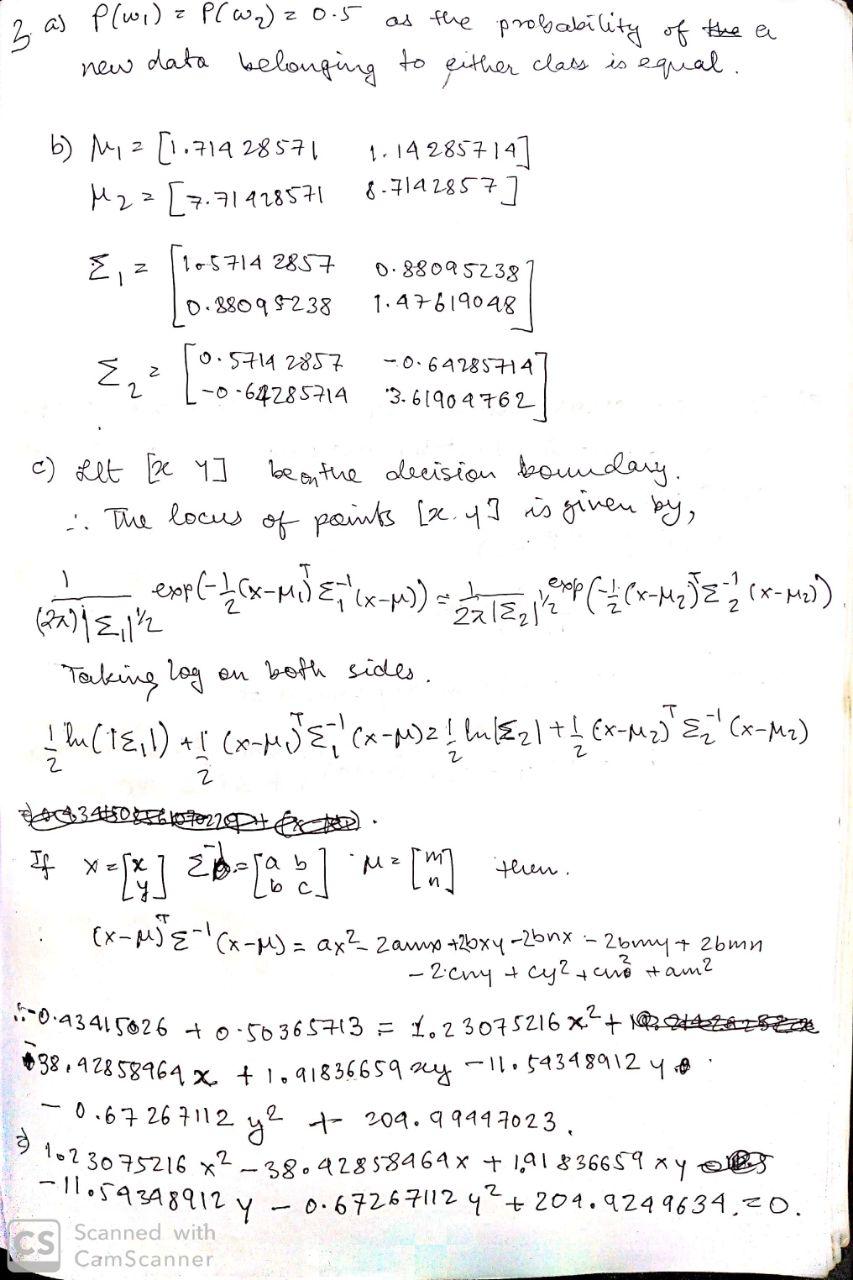 3. a) P(ω₁) = P(ω₂) = 0.5 as the probability of a
new data belonging to either class is equal.
b) μ₁ = [1.71428571 1.14285714]
μ₂ = [7.71428571 8.7142857]
Σ₁ = [1.57142857 0.88095238
0.88095238 1.47619048]
Σ₂ = [0.57142857 -0.64285714
-0.64285714 3.61904762]
c) Let [x y] be on the decision boundary.
∴ The locus of points [x. y] is given by,
1/((2π)|Σ₁|^1/2) exp(-1/2(x-μ₁)ᵀ Σ₁⁻¹(x-μ)) = 1/(2π|Σ₂|^1/2) exp(-1/2(x-μ₂)ᵀ Σ₂⁻¹(x-μ₂))
Taking log on both sides.
1/2 ln(|Σ₁|) + 1/2 (x-μ₁)ᵀ Σ₁⁻¹ (x-μ) = 1/2 ln|Σ₂| + 1/2 (x-μ₂)ᵀ Σ₂⁻¹ (x-μ₂)
If x = [x y] Σ⁻¹ = [a b b c] μ = [m n] then.
(x-μ)ᵀ Σ⁻¹ (x-μ) = ax² - 2amx + 2bxy - 2bnx - 2bmy + 2bmn
- 2cny + cy² + cn² + am²
∴ -0.43415026 + 0.50365713 = 1.23075216 x² +
-38.42858464 x + 1.91836659 xy - 11.54348912 y
- 0.67267112 y² + 204.99447023.
⇒ 1.23075216 x² - 38.42858464x + 1.91836659 xy
- 11.54348912 y - 0.67267112 y² + 204.9249634 = 0.
CS Scanned with
CamScanner